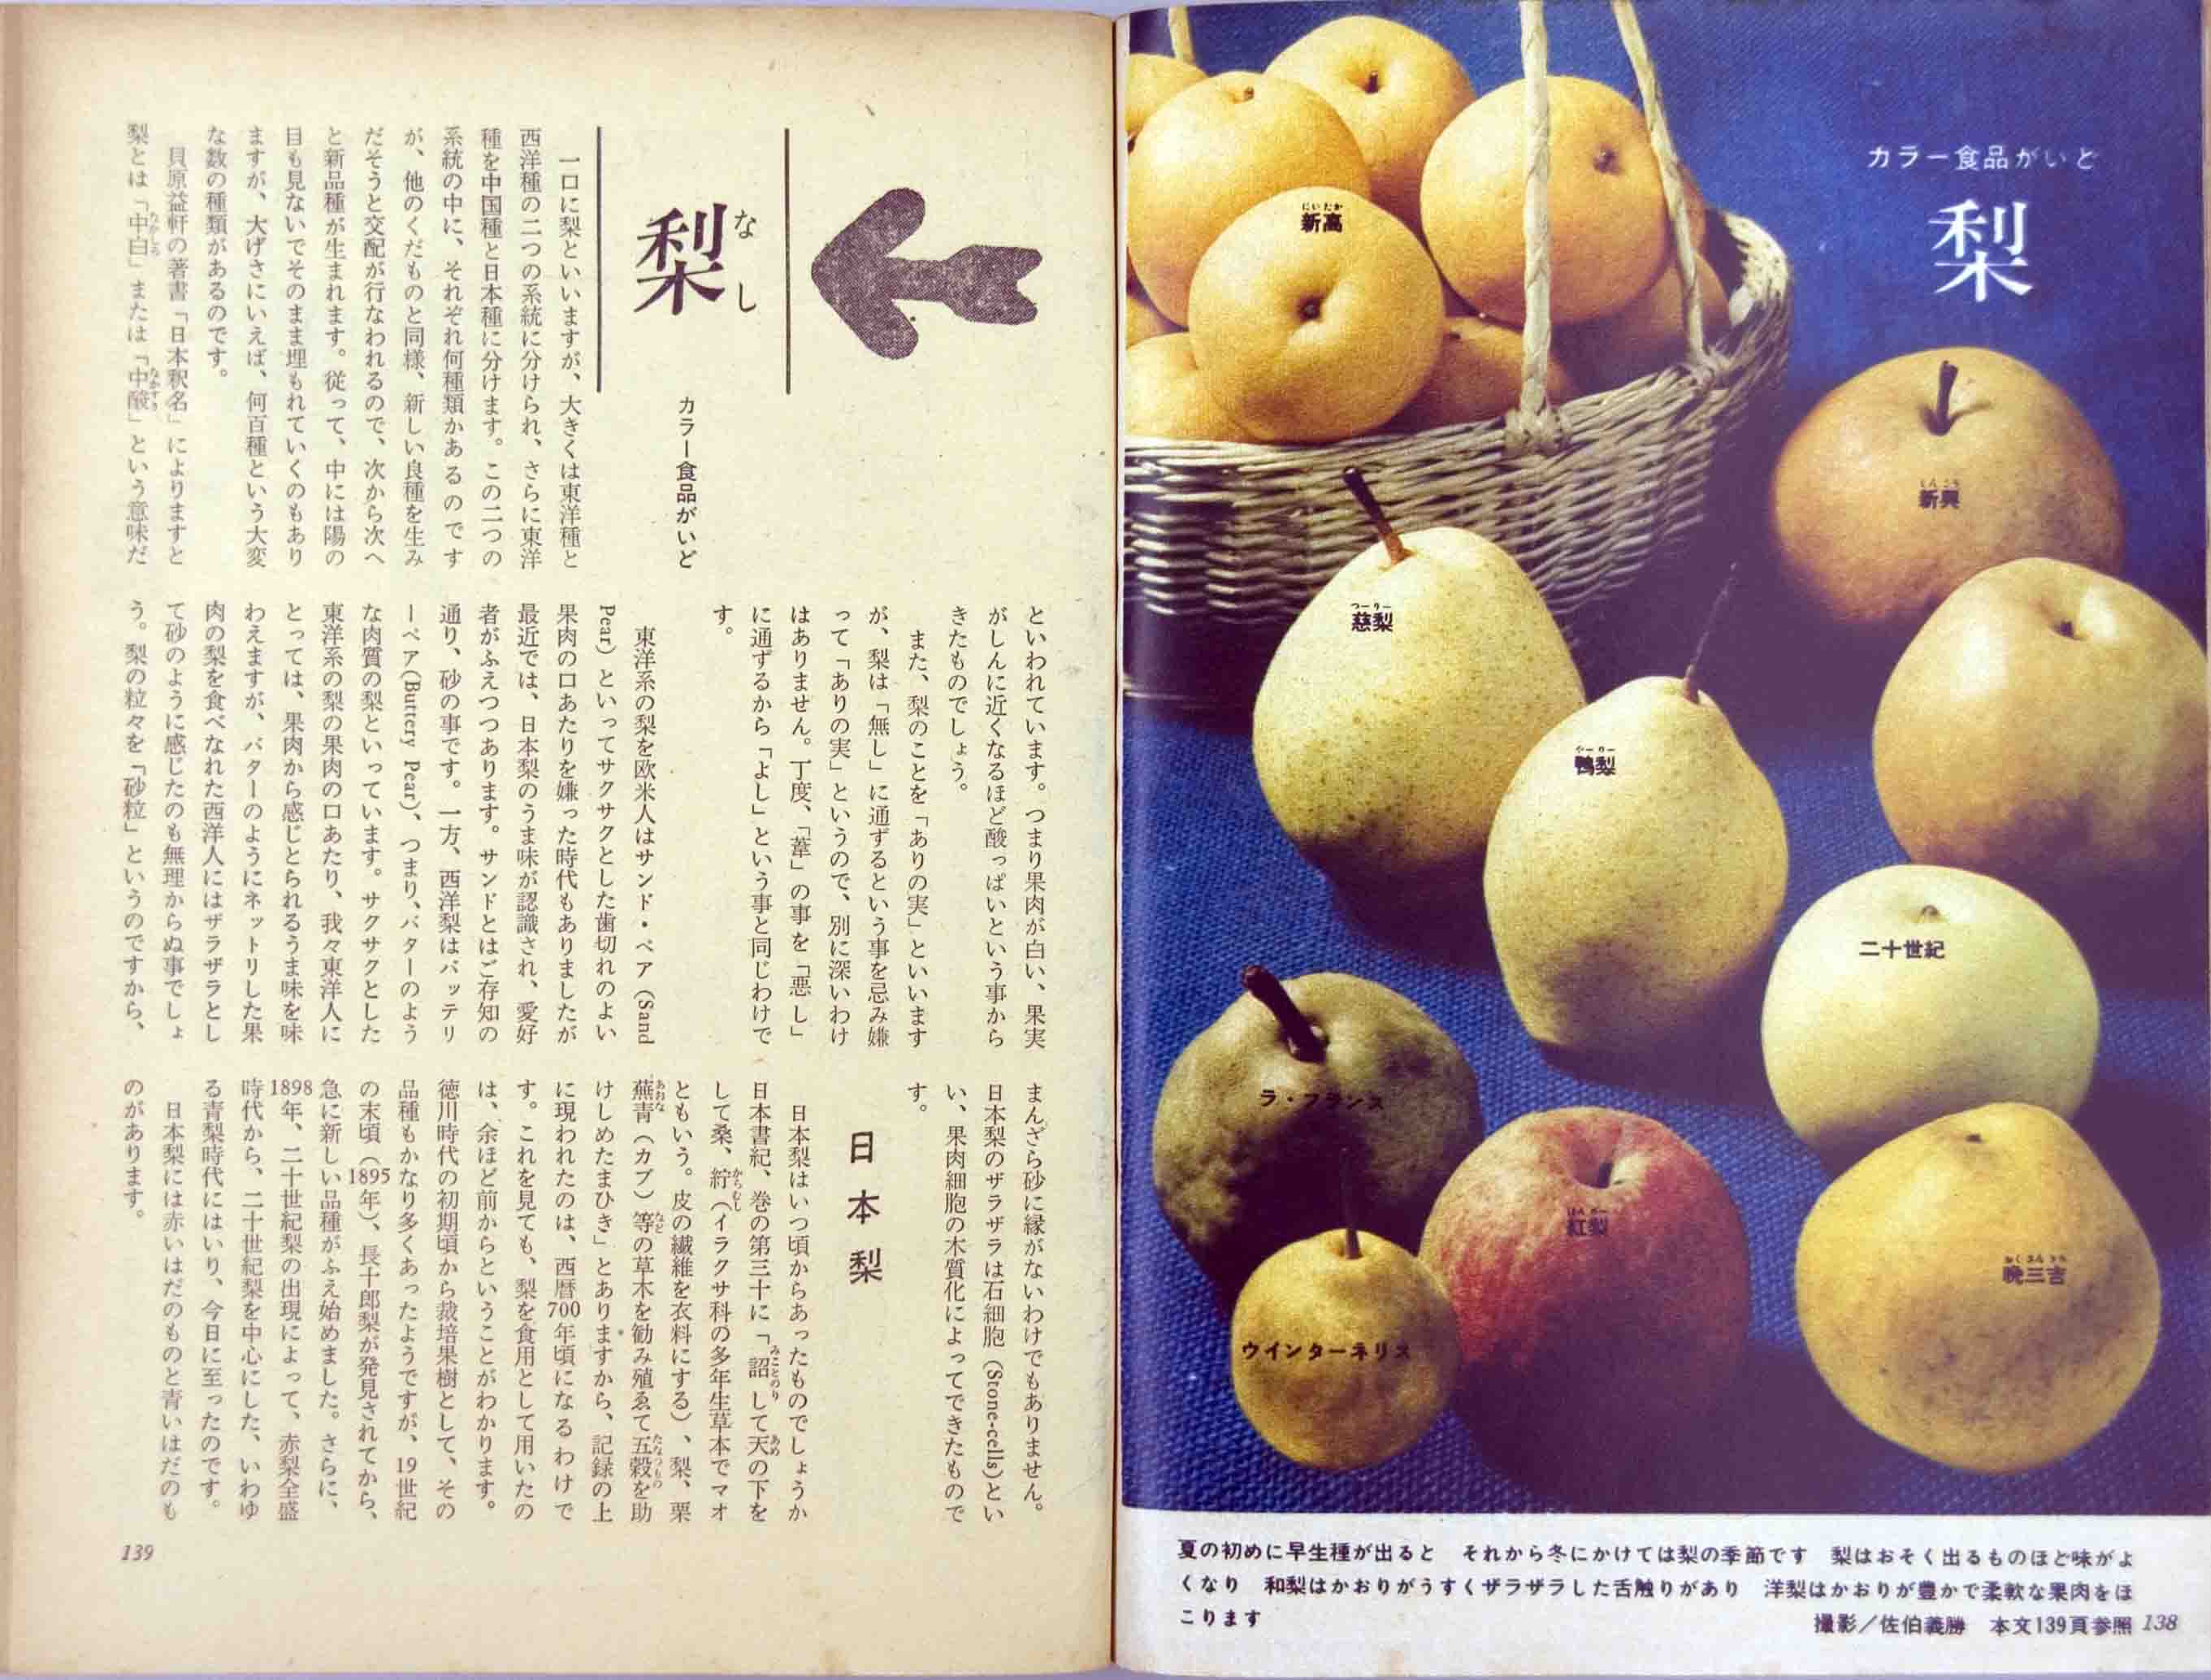 カラー食品がいど
梨
にいたか
新高
しんこう
新興
つーりー
慈梨
やーりー
鴨梨
二十世紀
ラ・フランス
ほんりー
紅梨
おくさんきち
晩三吉
ウインターネリス
夏の初めに早生種が出ると　それから冬にかけては梨の季節です　梨はおそく出るものほど味がよ
くなり　和梨はかおりがうすくザラザラした舌触りがあり　洋梨はかおりが豊かで柔軟な果肉をほ
こります
撮影／佐伯義勝　本文139頁参照 138
梨
なし
カラー食品がいど
一口に梨といいますが、大きくは東洋種と
西洋種の二つの系統に分けられ、さらに東洋
種を中国種と日本種に分けます。この二つの
系統の中に、それぞれ何種類かあるのです
が、他のくだものと同様、新しい良種を生み
だそうと交配が行なわれるので、次から次へ
と新品種が生まれます。従って、中には陽の
目も見ないでそのまま埋もれていくのもあり
ますが、大げさにいえば、何百種という大変
な数の種類があるのです。
貝原益軒の著書「日本釈名」によりますと
梨とは「中白」または「中酸」という意味だ
といわれています。つまり果肉が白い、果実
がしんに近くなるほど酸っぱいという事から
きたものでしょう。
また、梨のことを「ありの実」といいます
が、梨は「無し」に通ずるという事を忌み嫌
って「ありの実」というので、別に深いわけ
はありません。丁度、「葦」の事を「悪し」
に通ずるから「よし」という事と同じわけで
す。
東洋系の梨を欧米人はサンド・ペア（Sand
Pear）といってサクサクとした歯切れのよい
果肉の口あたりを嫌った時代もありましたが
最近では、日本梨のうま味が認識され、愛好
者がふえつつあります。サンドとはご存知の
通り、砂の事です。一方、西洋梨はバッテリ
ーペア(Buttery Pear)、つまり、バターのよう
な肉質の梨といっています。サクサクとした
東洋系の梨の果肉の口あたり、我々東洋人に
とっては、果肉から感じとられるうま味を味
わえますが、バターのようにネットリした果
肉の梨を食べなれた西洋人にはザラザラとし
て砂のように感じたのも無理からぬ事でしょ
う。梨の粒々を「砂粒」というのですから、
まんざら砂に縁がないわけでもありません。
日本梨のザラザラは石細胞（Stone-cells)とい
い、果肉細胞の木質化によってできたもので
す。
日本梨
日本梨はいつ頃からあったものでしょうか
日本書紀、巻の第三十に「詔して天の下を
して桑、紵（イラクサ科の多年生草本でマオ
ともいう。皮の繊維を衣料にする）、梨、栗
蕪青（カブ）等の草木を勧み殖ゑて五穀を助
けしめたまひき」とありますから、記録の上
に現われたのは、西暦700年頃になるわけで
す。これを見ても、梨を食用として用いたの
は、余ほど前からということがわかります。
徳川時代の初期頃から栽培果樹として、その
品種もかなり多くあったようですが、19世紀
の末頃（1895年）、長十郎梨が発見されてから、
急に新しい品種がふえ始めました。さらに、
1898年、二十世紀梨の出現によって、赤梨全盛
時代から、二十世紀梨を中心にした、いわゆ
る青梨時代にはいり、今日に至ったのです。
日本梨には赤いはだのものと青いはだのも
のがあります。
139